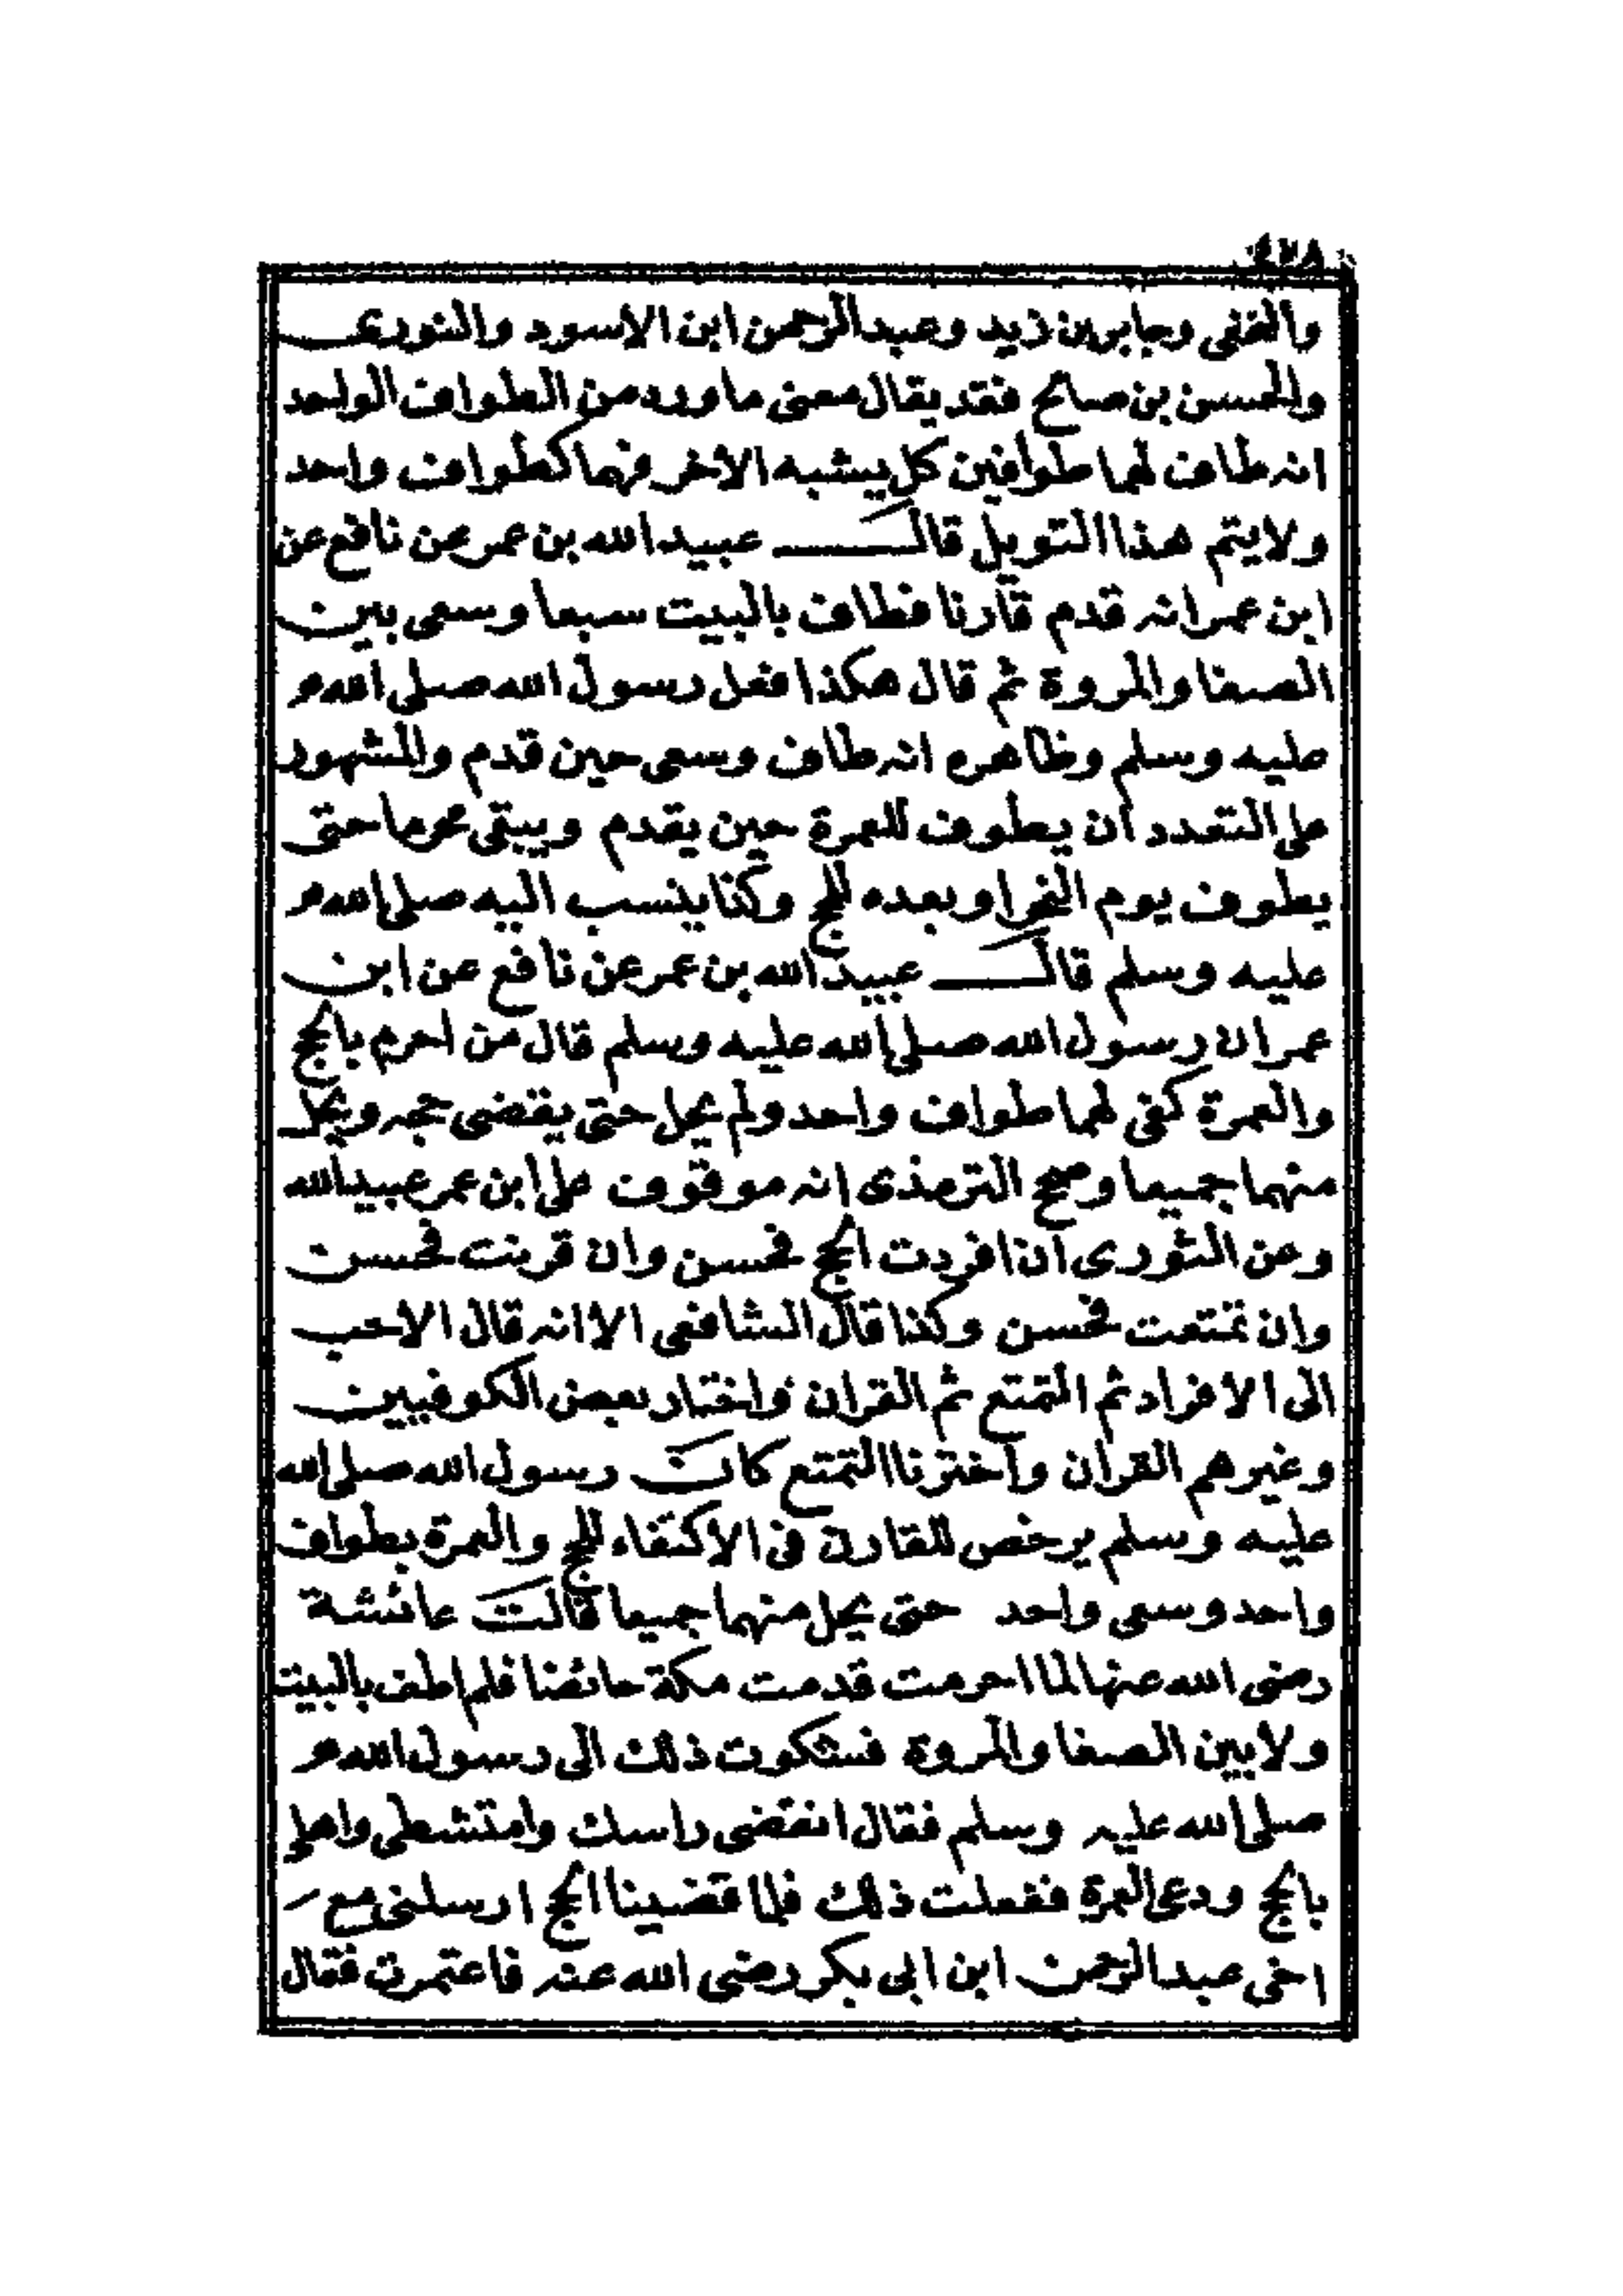 ٤٢٨
والنخعى وجابر بن زيد وعبد الرحمن ابن الاسود والثورى
والحسن بن صالح فقد يقال معنى ما ورد من الطواف الواحد
انه طاف لهما طوافين كل يشبه الاخر فهما كطواف واحد
ولا يتم هذا التويل قال عبيد الله بن عمر عن نافع عن
ابن عمر انه قدم قارنا فطاف بالبيت سبعا وسعى بين
الصفا والمروة ثم قال هكذا فعل رسول الله صلى الله
عليه وسلم وظاهره انه طاف وسعى حين قدم والمشهور
على التعدد ان يطوف للعمرة حين يقدم ويبقى محرما حتى
يطوف يوم النحر او بعده للحج وكنا ينسب اليه صلى الله
عليه وسلم قال عبيد الله بن عمر عن نافع عن ابن
عمر ان رسول الله صلى الله عليه وسلم قال من احرم بالحج
والعمرة كفى لهما طواف واحد ولم يحل حتى يقضى حجه ويحل
منهما جميعا وصحح الترمذى انه موقوف على ابن عمر عبيد الله
وعن الثورى ان افردت الحج فحسن وان قرنت فحسن
وان تمتعت فحسن وكذا قال الشافعى الا انه قال الاحب
الى الافراد ثم التمتع ثم القران واختار بعض الكوفيين
وغيرهم القران واخترنا التمتع كان رسول الله صلى الله
عليه وسلم يرخص للقارن فى الاكتفاء للحج والعمرة بطواف
واحد وسعى واحد حتى يحل منهما جميعا قالت عائشة
رضى الله عنها لما احرمت قدمت مكة حائضا فلم اطف بالبيت
ولا بين الصفا والمروة فشكوت ذلك الى رسول الله
صلى الله عليه وسلم فقال انقضى راسك وامتشطى واهلى
بالحج ودعى العمرة ففعلت ذلك فلما قضينا الحج ارسلنى مع
اخى عبد الرحمن ابن ابى بكر رضى الله عنه فاعتمرت فقال